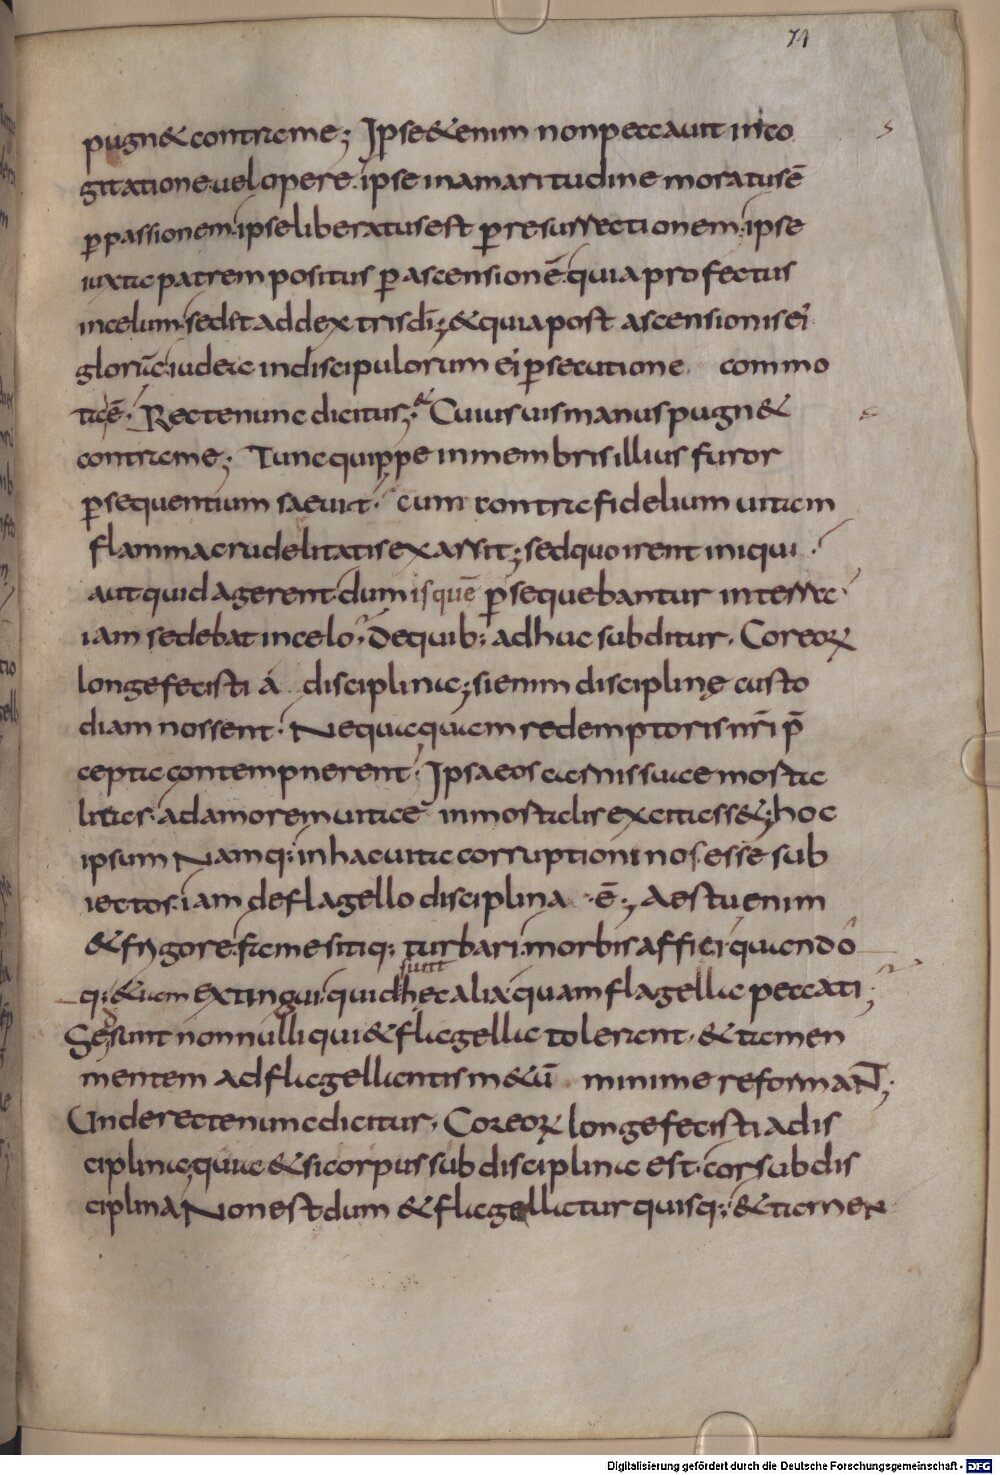 74
pugn& contrame; Ipse&enim non peccauit in co
gitatione uel opere. ipse in amaritudine moratus ē
p passionem. ipse liberatus est p resurrectionem. ipse
iuxta patrem positus p ascensionē. quia profectus
in celum. sedit ad dextris dī; & quia post ascensionis ei
gloriā iudea in discipulorum ei psecutione commo
ta ē. Recte nunc dicitur; Cuius uis manus pugn&
contra me; Tunc quippe in membris illius furor
psequentium saeuit. cum contra fidelium uitam
flamma crudelitatis exarsit; sed quo irent iniqui.
aut quid agerent dum is quē psequebantur in terra
iam sedebat in celo. De quib: adhuc subditur. Cor eoꝝ
longe fecisti a disciplina; si enim disciplinę custo
diam nossent. Nequaquam redemptoris nr̄i p̄
cepta contempnerent. Ipsa eos carnis suae morta
litas ad amorem uitae inmortalis excitass&; hoc
ipsum Namq: in hac uita corruptioni nos esse sub
iectos. iam de flagello disciplina ē; Aestu enim
& frigore. fame sitiq: turbari. morbis affici. quando
q: &iam extingui. quid sunt hec alia quam flagella peccati;
Sed sunt nonnulli qui & flagella tolerant. & tamen
mentem ad flagellantis m&ū minime reformaNT;
Unde recte nunc dicitur. Cor eoꝝ longe fecisti a dis
ciplina; quia &si corpus sub disciplina est. cor sub dis
ciplina Non est dum & flagellatur quisq: & tamen
Digitalisierung gefördert durch die Deutsche Forschungsgemeinschaft - DFG